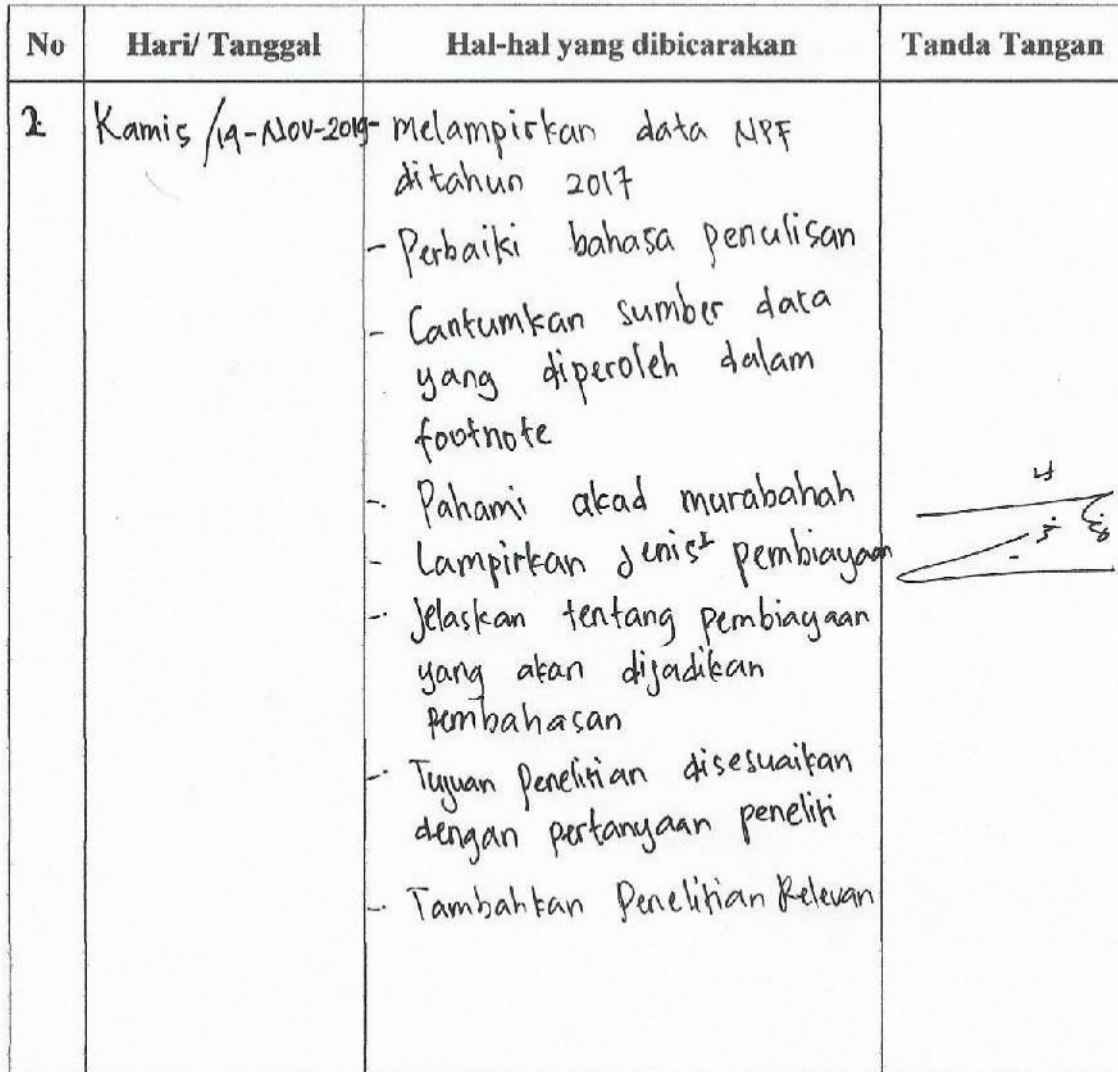 No Hari/ Tanggal Hal-hal yang dibicarakan Tanda Tangan
2 Kamis /14-Nov-2019 - Melampirkan data NPF
ditahun 2017
- Perbaiki bahasa penulisan
- Cantumkan sumber data
yang diperoleh dalam
footnote
- Pahami akad murabahah
- Lampirkan Jenis² pembiayaan
- Jelaskan tentang pembiayaan
yang akan dijadikan
pembahasan
- Tujuan Penelitian disesuaikan
dengan pertanyaan peneliti
- Tambahkan Penelitian Relevan